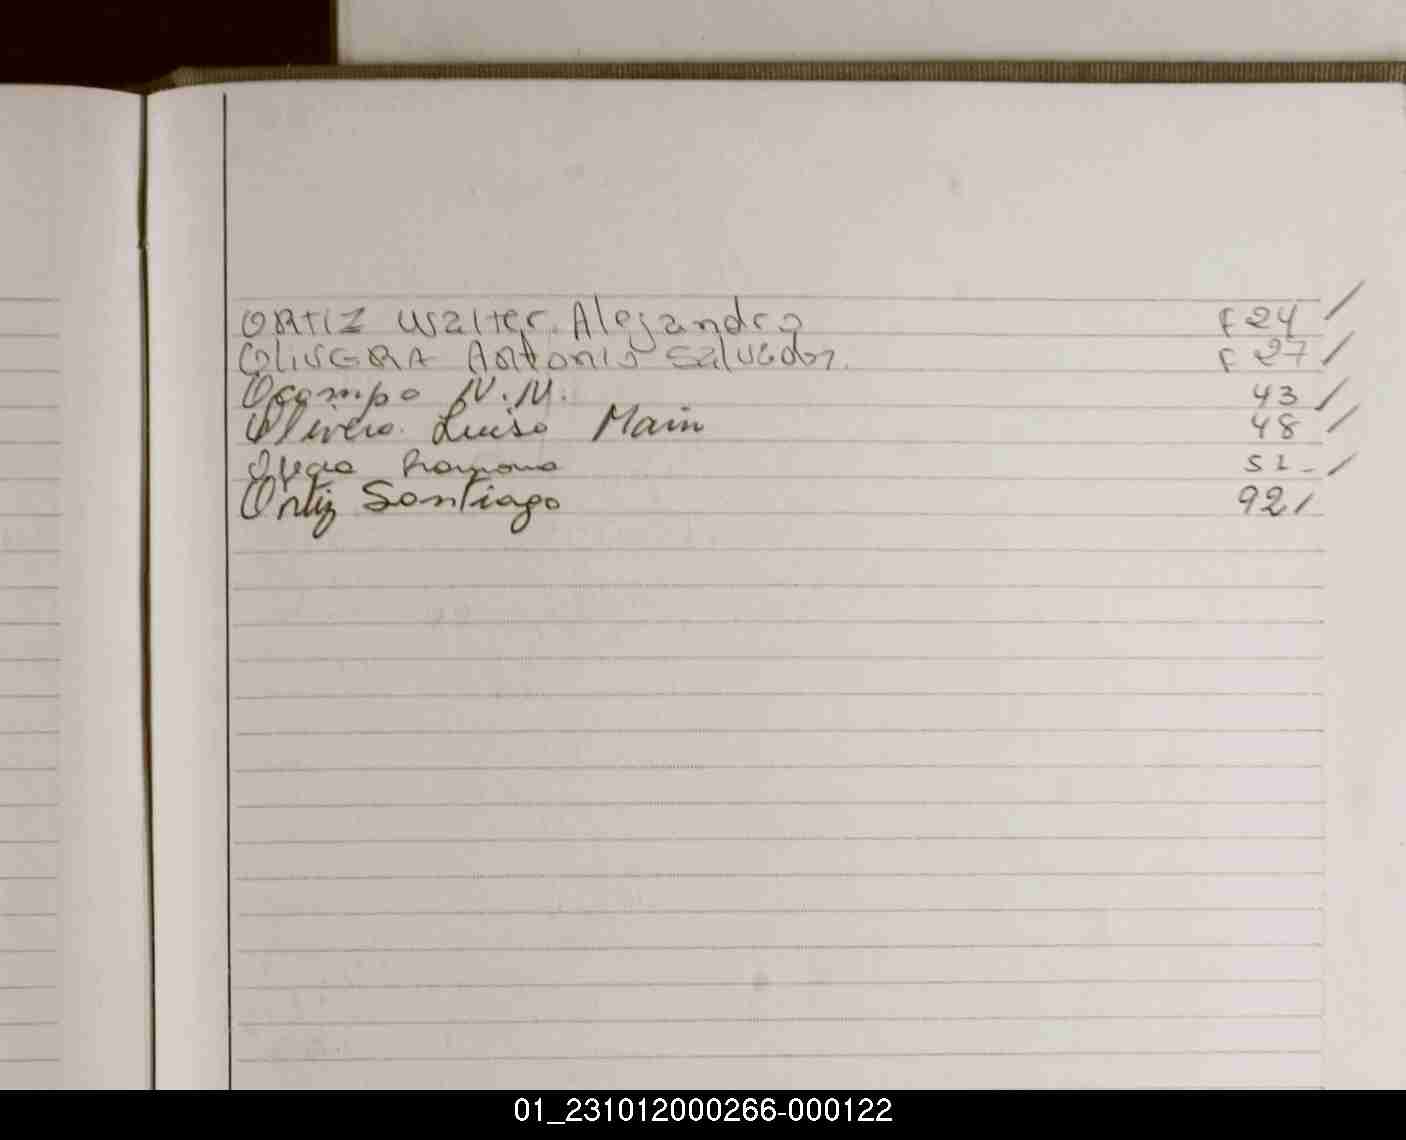 ORTIZ Walter Alejandro F 24 /
OLIVERA Antonio Salvador. F 27 /
Ocampo N.M. 43 /
Olivera Luisa Main 48 /
Ramona 52 - /
Ortiz Santiago 92 /
01_231012000266-000122